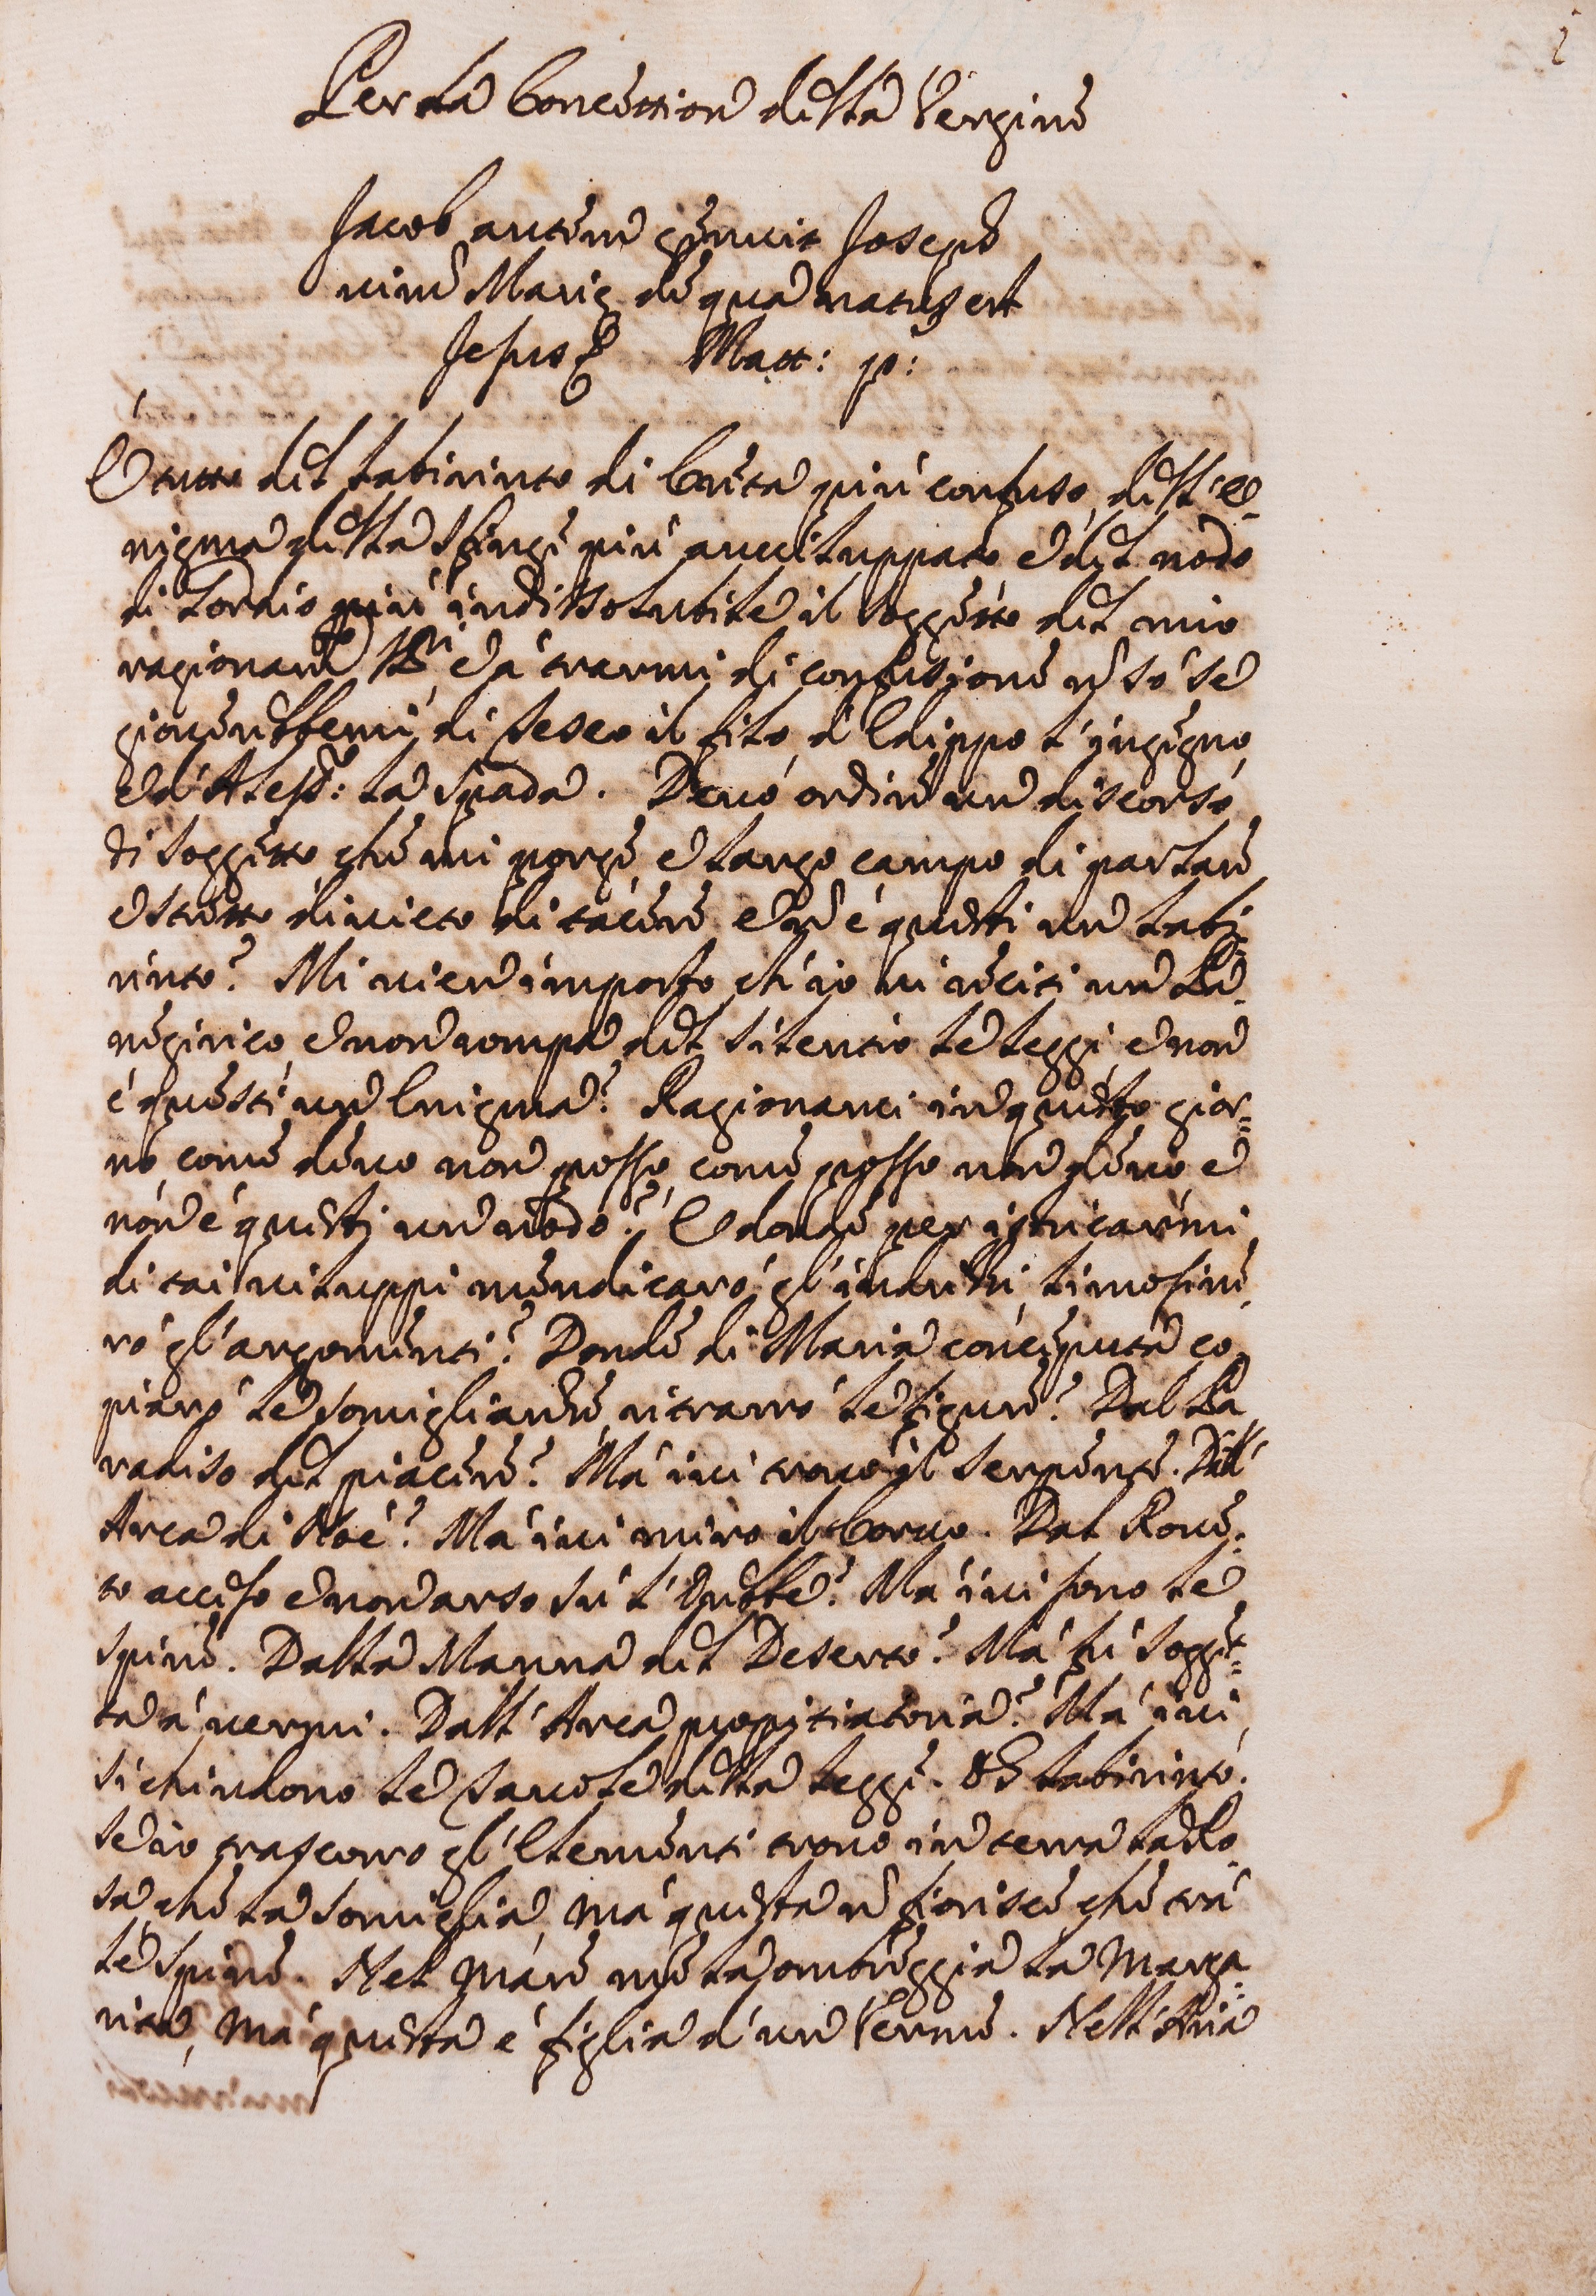 Per la Concettion della Vergine
Jacob autem genuit Joseph
virũ Marię de qua natus est
Jesus Matt: pº:
È tutto del labirinto di Creta più confuso, dell'e=
nigma della Sfinge più avviluppato e del nodo
di Gordio più indissolubile il soggetto del mio
ragionam.to e à trarmi di confusione nõ sò se
giovenebbemi di Teseo il filo, d'Edippo l'ingegno,
e d'Aless.º: la spada. Devo ordire un discorso
di soggetto, che mi porge, e largo campo di parlare
e stretto divieto di tacere, e nõ è questi un labi=
rinto? Mi vien imposto, ch'io vi reciti un Pa=
negirico, e non rompa del silentio le leggi, e non
è questi un Enigma? Ragionarvi in questo gior=
no, come devo non posso, come posso non devo e
non è questi un nodo? E donde per istricarmi
di tai viluppi mendicarò gl'indritti, limosine=
rò gl'argomenti? Donde di Maria conceputa co=
piarò le somiglianze, ritrarrò le figure? Dal Pa=
radiso del piacere? Mà ivi trovo il serpente. Dall'
Arca di Noè? Mà ivi miro il Corvo. Dal Rove=
to acceso e non arso sù l'Orebbe? Mà ivi sono le
spine. Dalla Manna del Deserto? Mà fù sogget=
ta à vermi. Dall'Arca propitiatoria? Mà ivi
si chiudono le tavole della legge. Oh labirinto.
Se io trascorro gl'Elementi trovo in terra la Ro=
sa che la somiglia, mà questa nõ fiorisce che trà
le spine. Nel Mare me la ombreggia la Marga=
rita, mà questa è figlia d'un Verme. Nell'Aria